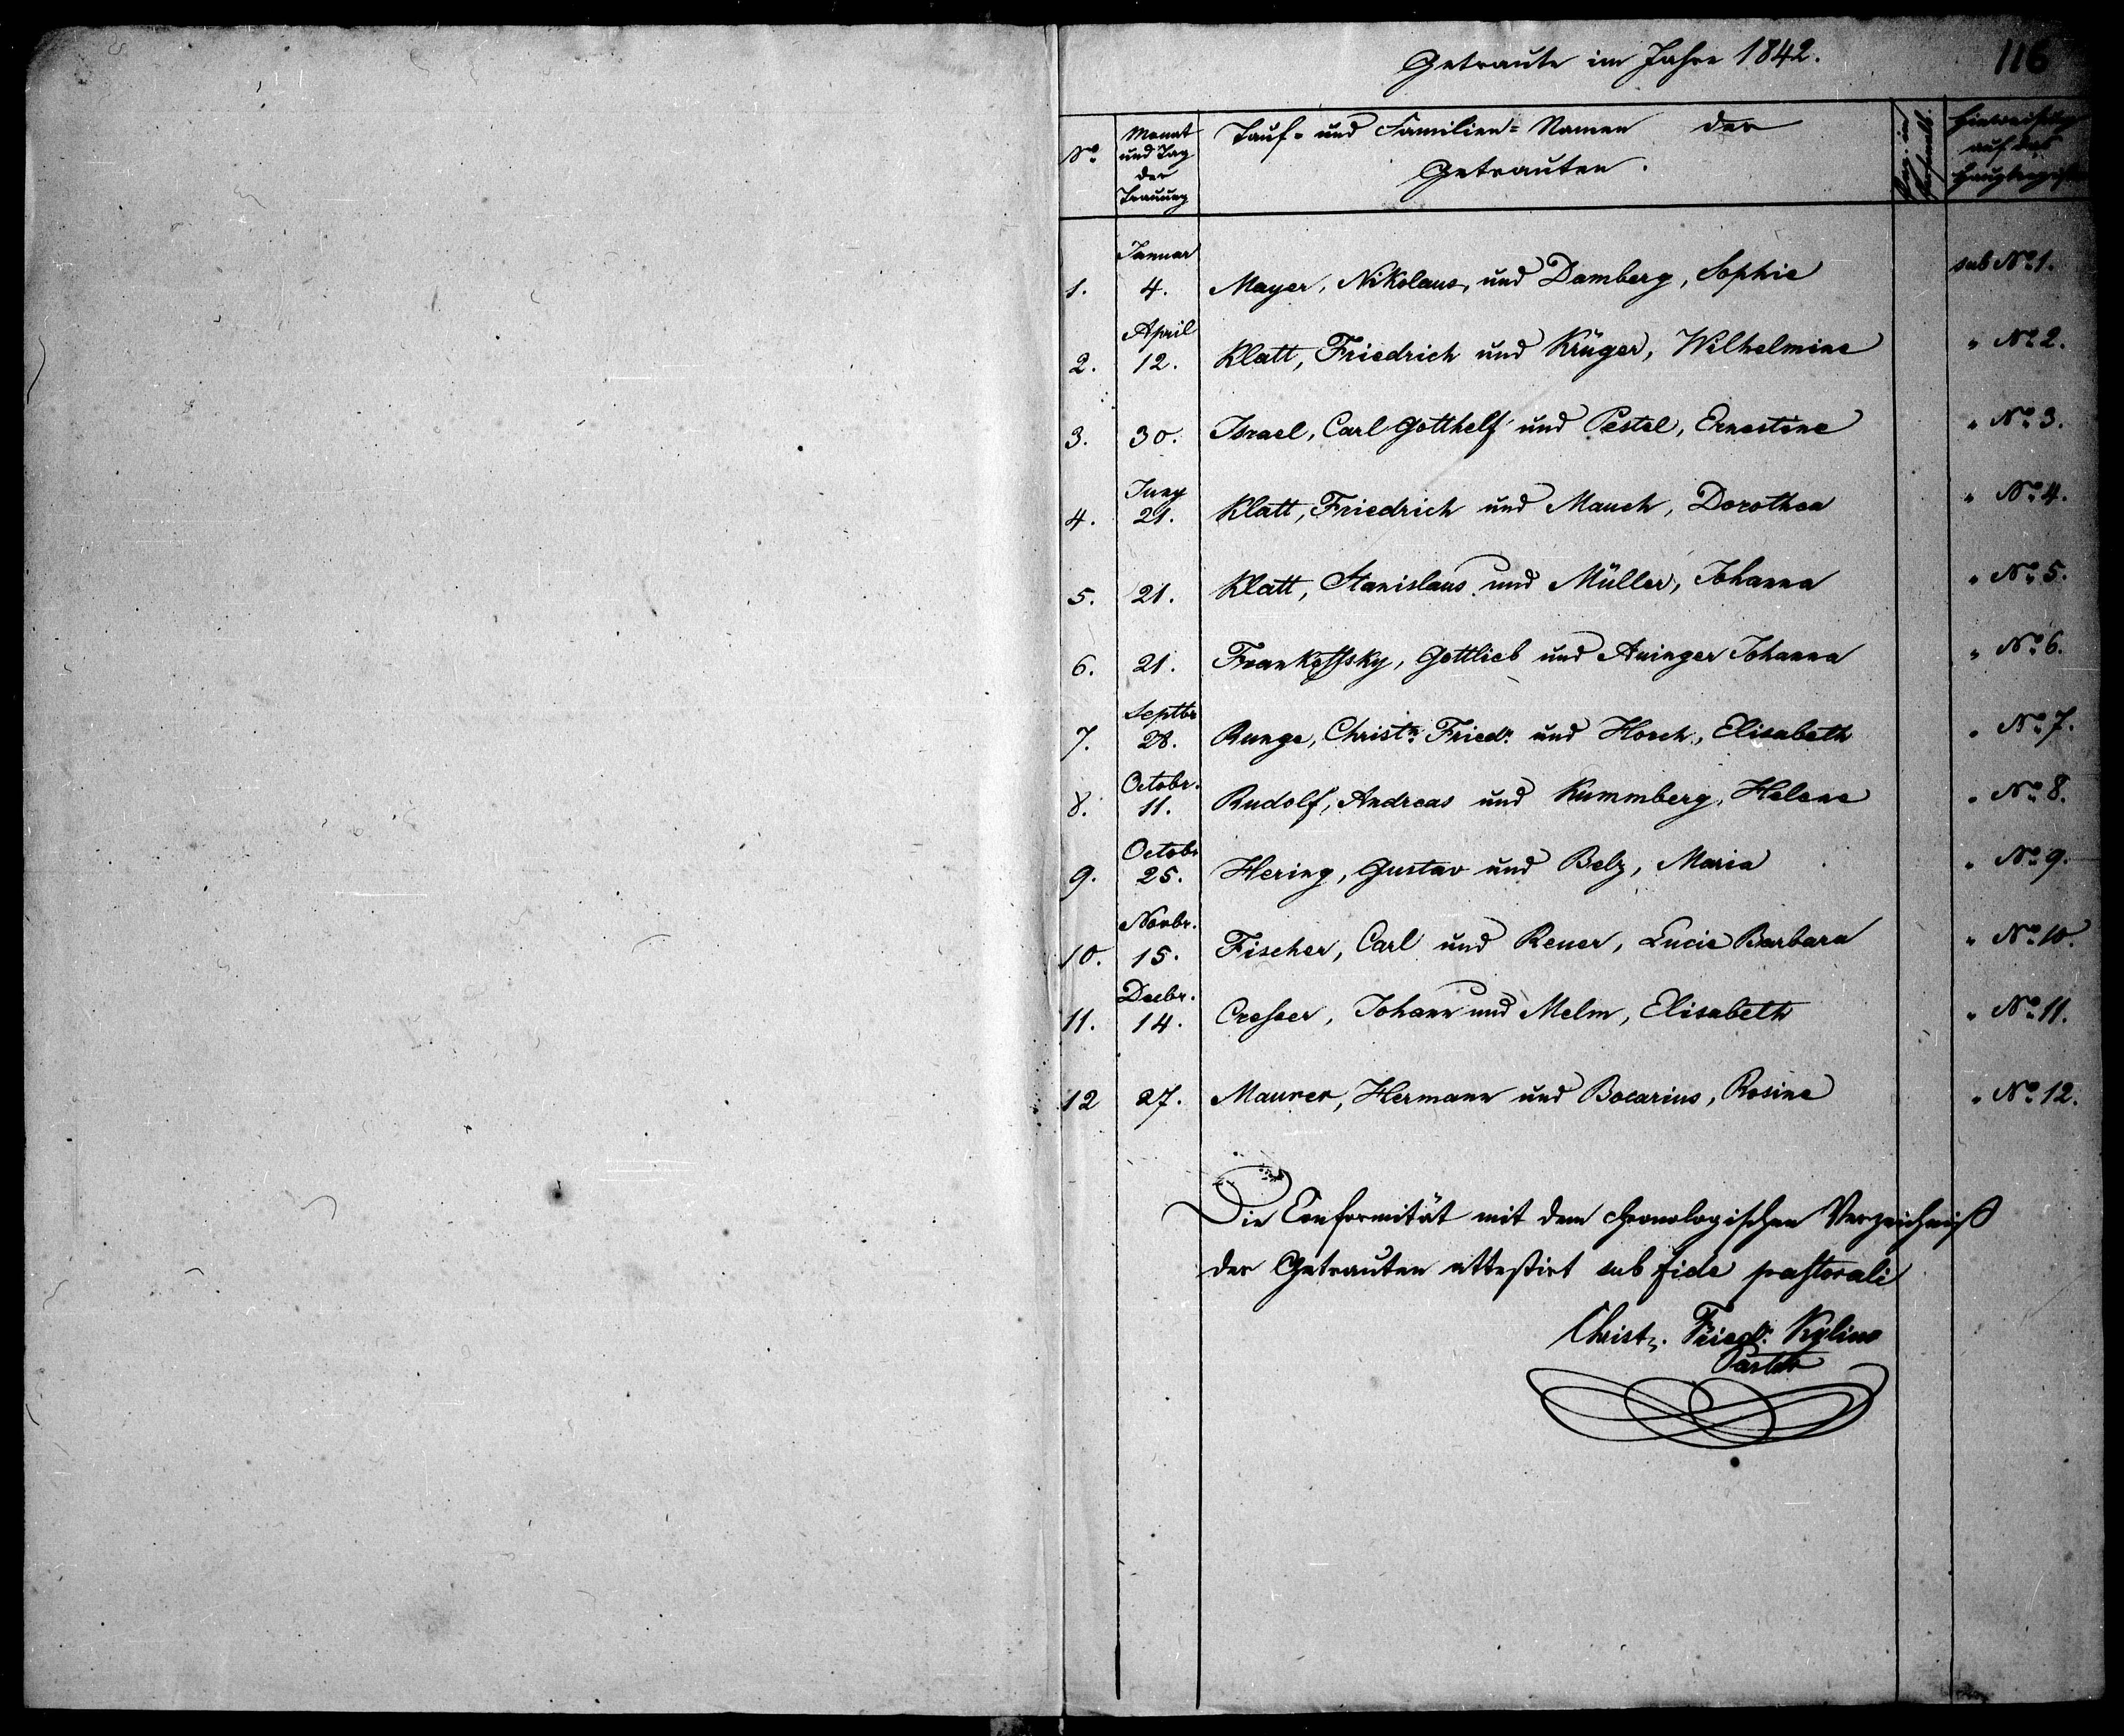 116
Getraute im Jahre 1842.
No. Monat und Tag der Trauung Tauf- und Familien-Namen der Getrauten. Hinweisung auf das Hauptregister
Januar
1. 4. Mayer, Nikolaus, und Damberg, Sophie sub No. 1.
April
2. 12. Klatt, Friedrich und Krüger, Wilhelmine " No. 2.
3. 30. Israel, Carl Gotthelf und Pestel, Ernestine " No. 3.
Juny
4. 21. Klatt, Friedrich und Mauch, Dorothea " No. 4.
5. 21. Klatt, Stanislaus und Müller, Johanna " No. 5.
6. 21. Gottlieb und Aninger Johanna " No. 6.
Septbr
7. 28. Runge, Christn. Friedr. und Horch, Elisabeth " No. 7.
Octobr.
8. 11. Rudolf, Andreas und Kummberg, Helene " No. 8.
Octobr
9. 25. Hering, Gustav und Belz, Maria " No. 9.
Novbr.
10. 15. Fischer, Carl und Reuer, Lucie Barbara " No. 10.
Decbr.
11. 14. Cresser, Johann und Melm, Elisabeth " No. 11.
12 27. Maurer, Hermann und Bocarius, Rosine " No. 12.
Die Conformität mit dem chronologischen Verzeichniß
der Getrauten attestirt sub fide pastorali
Christ. Friedr. Kylius
Pastor